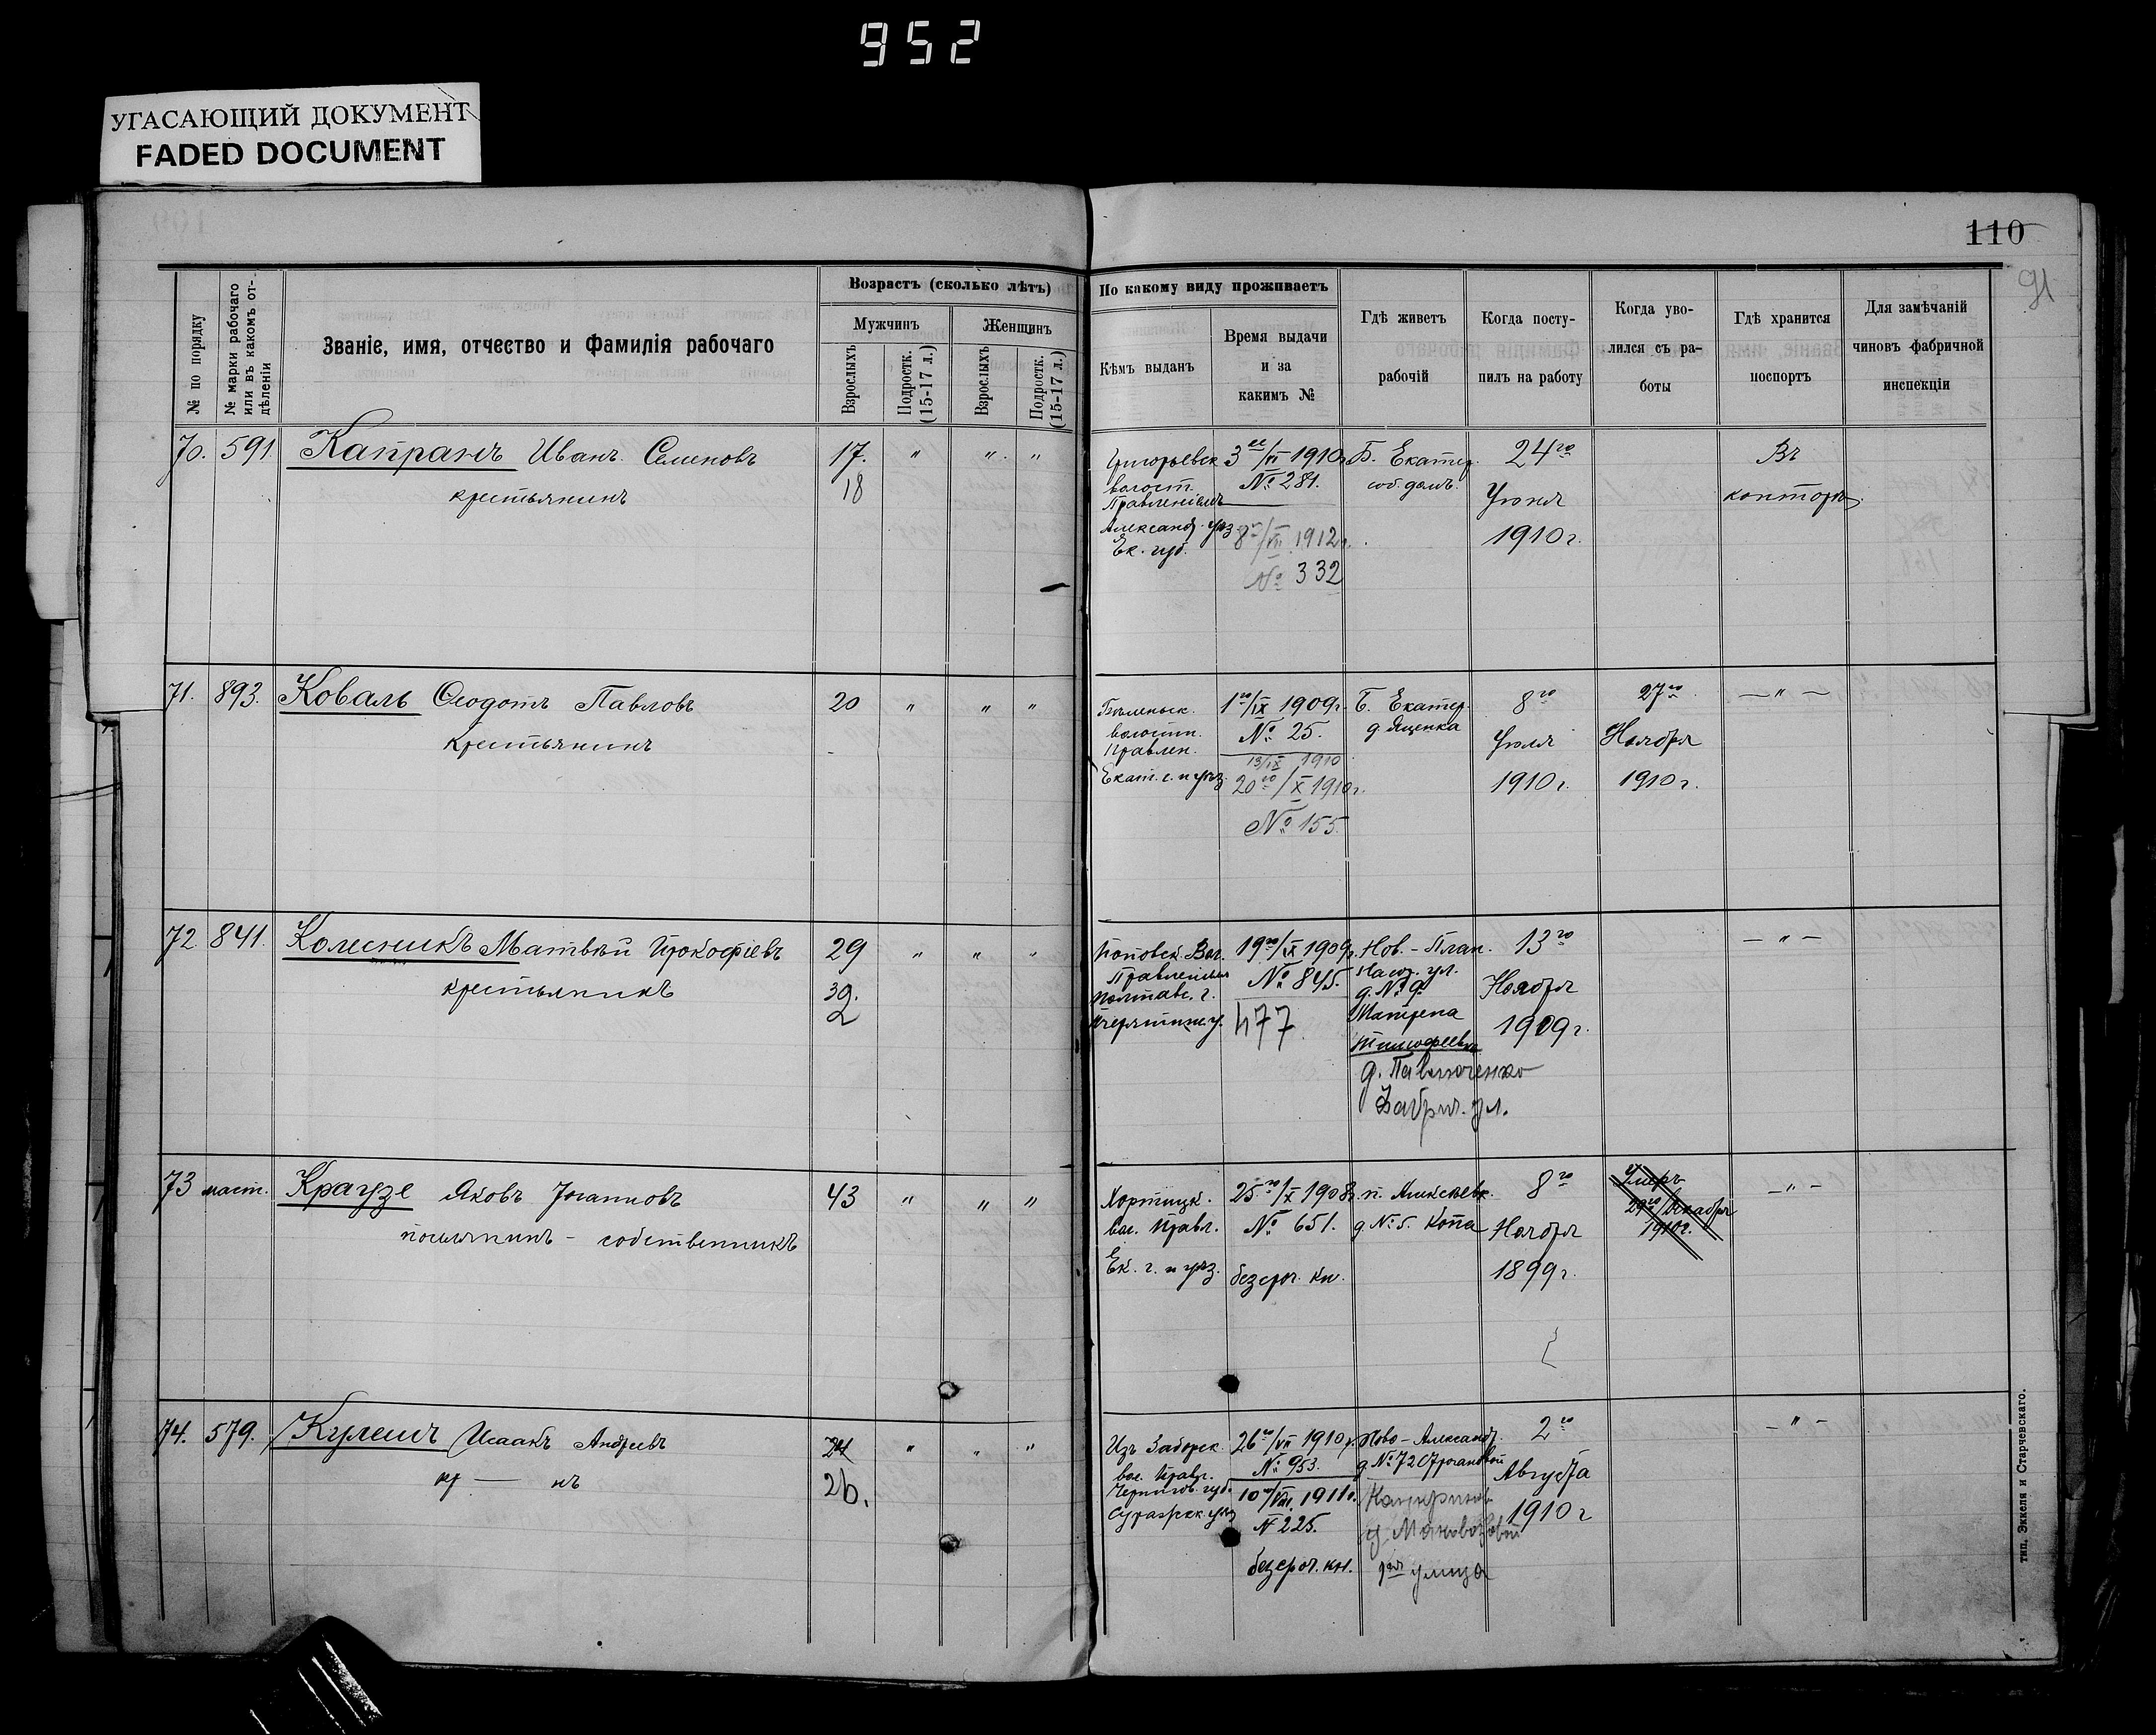 952
УГАСАЮЩИЙ ДОКУМЕНТ
FADED DOCUMENT
110
91
№ по порядку
№ марки рабочаго
или въ какомъ от-
дѣленіи
Званіе, имя, отчество и Фамилія рабочаго
Возрастъ (сколько лѣтъ)
Мужчинъ
Женщинъ
Взрослыхъ
Подростк.
(15-17 л.)
Взрослыхъ
Подростк.
(15-17 л.)
По какому виду проживаетъ
Кѣмъ выданъ
Время выдачи
и за
какимъ №
Гдѣ живетъ
рабочій
Когда посту-
пилъ на работу
Когда уво-
лился съ ра-
боты
Гдѣ хранится
поспортъ
Для замѣчаній
чиновъ фабричной
инспекціи
70. 591. Капранъ Иванъ Семеновъ
крестьянинъ
17. " " "
18
Григорьевск.
волост.
Правленіемъ
Александ. уѣз.
Ек. губ.
3го/VI 1910г.
№ 281.
8го/VII 1912г.
№ 332
Б. Екатер.
соб. домъ.
24го
Іюня
1910 г.
Въ
конторѣ.
71. 893. Коваль Ѳеодотъ Павловъ
крестьянинъ
20 " " "
волостн.
Правлен.
Екат. г. и уѣз.
1го/IX 1909г.
№ 25.
13/IX 1910
20го/X 1910г.
№ 155.
Б. Екатер.
д. Яценка
8го
Іюля
1910 г.
27го
Ноября
1910 г.
— " —
72 841. Колесникъ Матвѣй Прокофіевъ
крестьянинъ
29 " " "
30.
2
Поповск. Вол.
Правленіемъ
Полтавс. г.
19го/IX 1909г.
№ 845.
477
Нов.-План.
д. № 9
д. Павлюченко
Фабрич. ул.
13го
Ноября
1909 г.
— " —
73 маст. Краузе Яковъ Іогановъ
поселянинъ - собственникъ
43 " " "
Хортицк.
вол. Правл.
Ек. г. и уѣз.
25го/X 1908г.
№ 651.
безсроч. кн.
д. № 5. Копа
8го
Ноября
1899 г.
Умеръ
29го/Декабря
1910 г.
— " —
74. 579. Кулешъ Исаакъ Андреевъ
кр — нъ
24 " " "
26.
вол. Правл.
Чернигов. губ.
Суражск. уѣз.
26го/VII 1910г.
№ 953.
10го/VIII 1911г.
№ 225.
безсроч. кн.
Ново-Александ.
улица
2го
Августа
1910 г
— " —
тип. Эккеля и Старчевскаго.